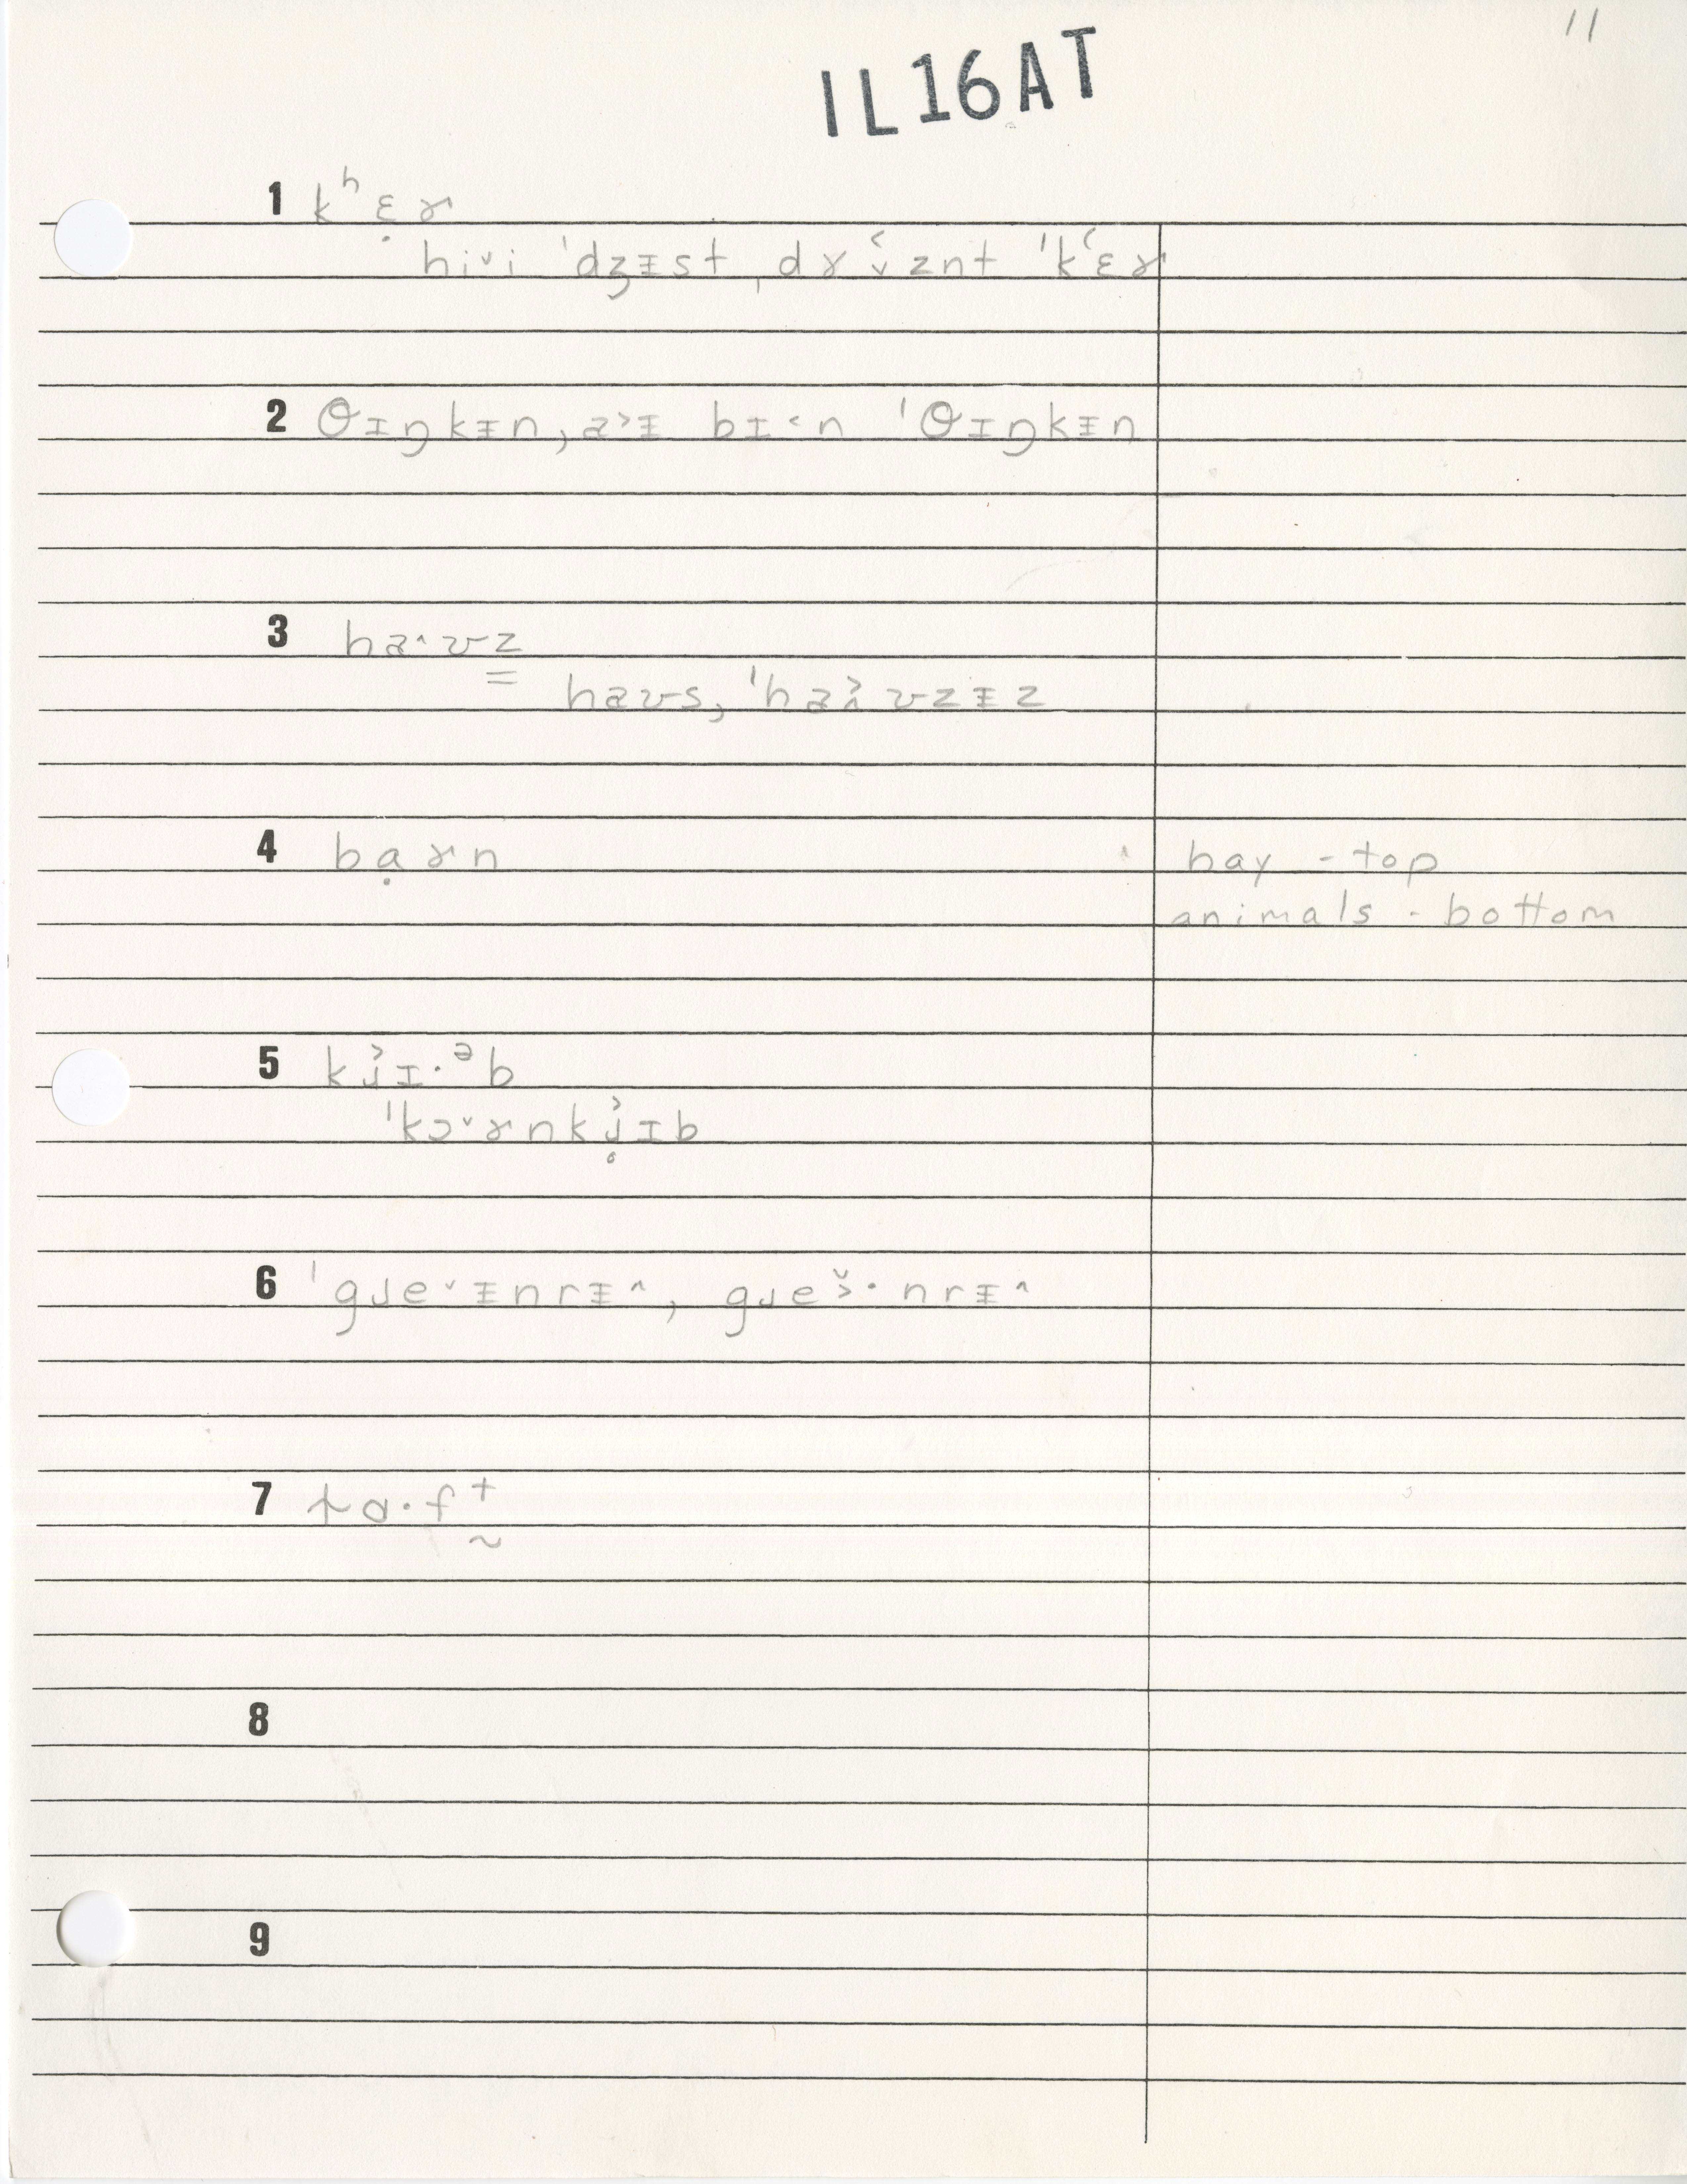 11
IL16AT
1 kʰɛ̣ɚ
hiᵛi ˈdʒɨst ˌdɤ̌znt ˈkʻɛɚ
2 θɪŋkɨn, a˃ɨ bɪ˂n ˈθɪŋkɨn
3 ha˄·ʊz̳
haʊs, ˈha˃˄ʊzɨz
4 bạɚn hay - top
animals - bottom
5 kɹ˃ɪ·ᵊb
ˈkɔ˅ɚnkɹ̥˃ɪb
6 ˈgɹe˅ɨnrɨ˄, gɹe˅˃·nrɨ˄
7 lɑ·fᵗ̰
8
9